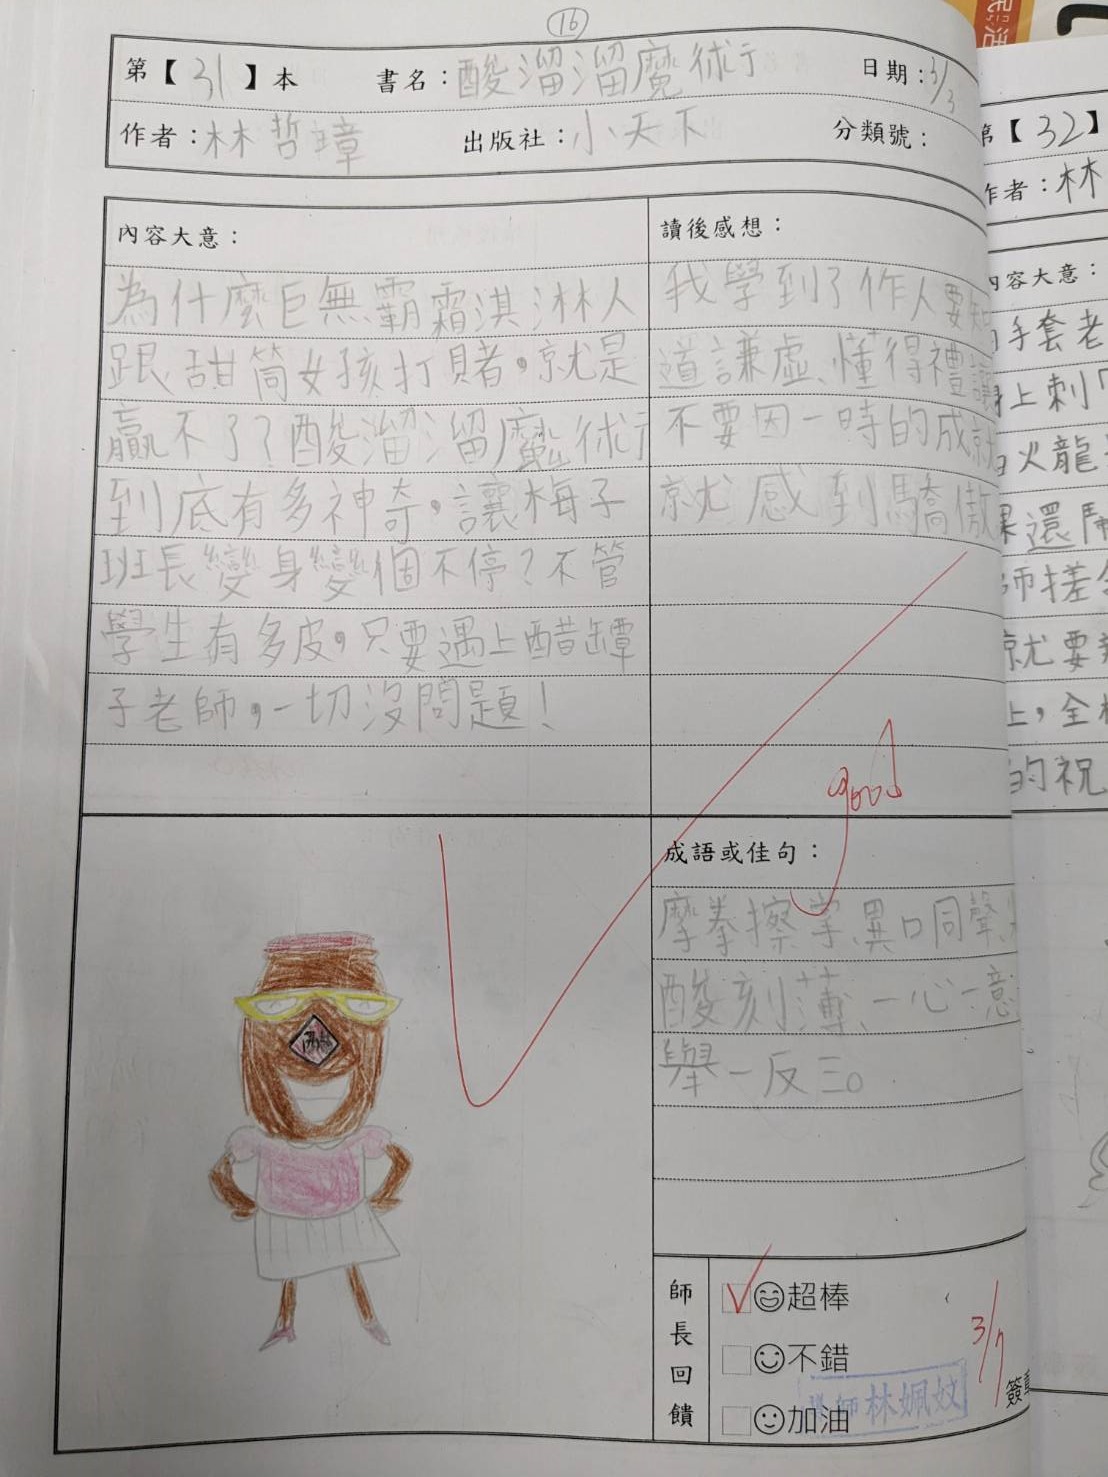 16
第【31】本 書名:酸溜溜魔術 日期:3/3
作者:林哲璋 出版社:小天下 分類號:
內容大意:
為什麼巨無霸霜淇淋人
跟甜筒女孩打賭,就是
贏不了?酸溜溜魔術
到底有多神奇,讓梅子
班長變身變個不停?不管
學生有多皮,只要遇上醋罈
子老師,一切沒問題!
讀後感想:
我學到了作人要知
道謙虛、懂得禮讓
不要因一時的成就
就感到驕傲
good
成語或佳句:
摩拳擦掌、異口同聲、
酸刻薄、一心一意
舉一反三。
醋
師長回饋
超棒
不錯
加油
3/7
師林姵妏
簽章
民活
第【32】
作者:林
內容大意:
手套老
身上刺
火龍
果還
師搓
就要
上,全
的祝